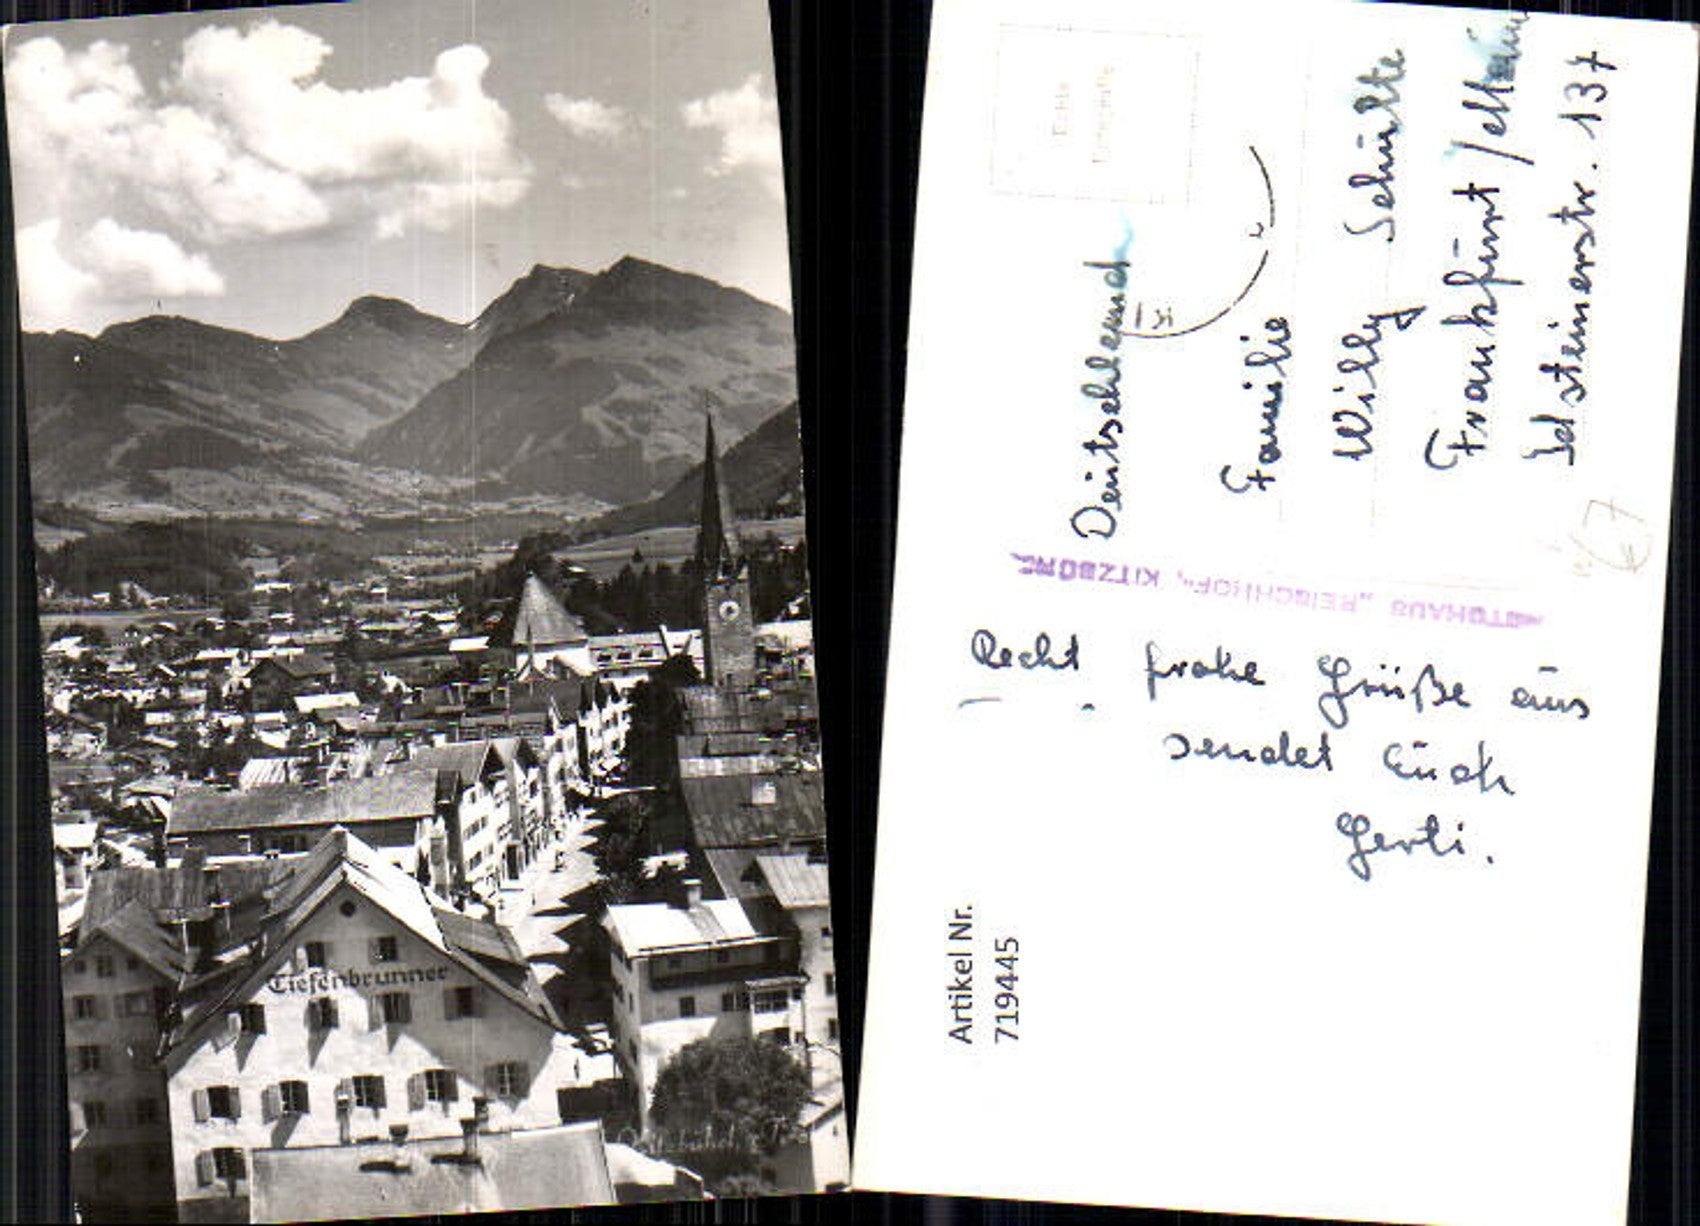 Tiefenbrunner
Kitzbühel
Echte
Fotografie
Deutschland
Familie
Willy Schulte
Frankfurt/Main
Idsteinerstr. 137
"REISCHHOF", KITZBÜH
Recht frohe Grüße aus
sendet Euch
Gerti.
Artikel Nr.
719445